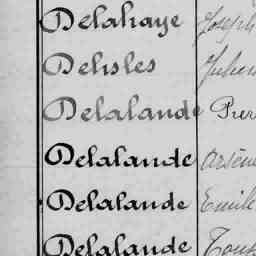 Delahaye Joseph
Delisles
Delalande Pier
Delalande Arsène
Delalande Emile
Delalande